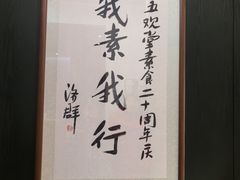 五观堂素食二十周年庆
我素我行
济群